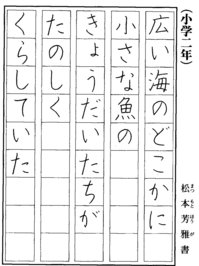 （小学二年）
広い海のどこかに
小さな魚の
きょうだいたちが
たのしく
くらしていた
松本芳雅書
まつもとほうがしょ